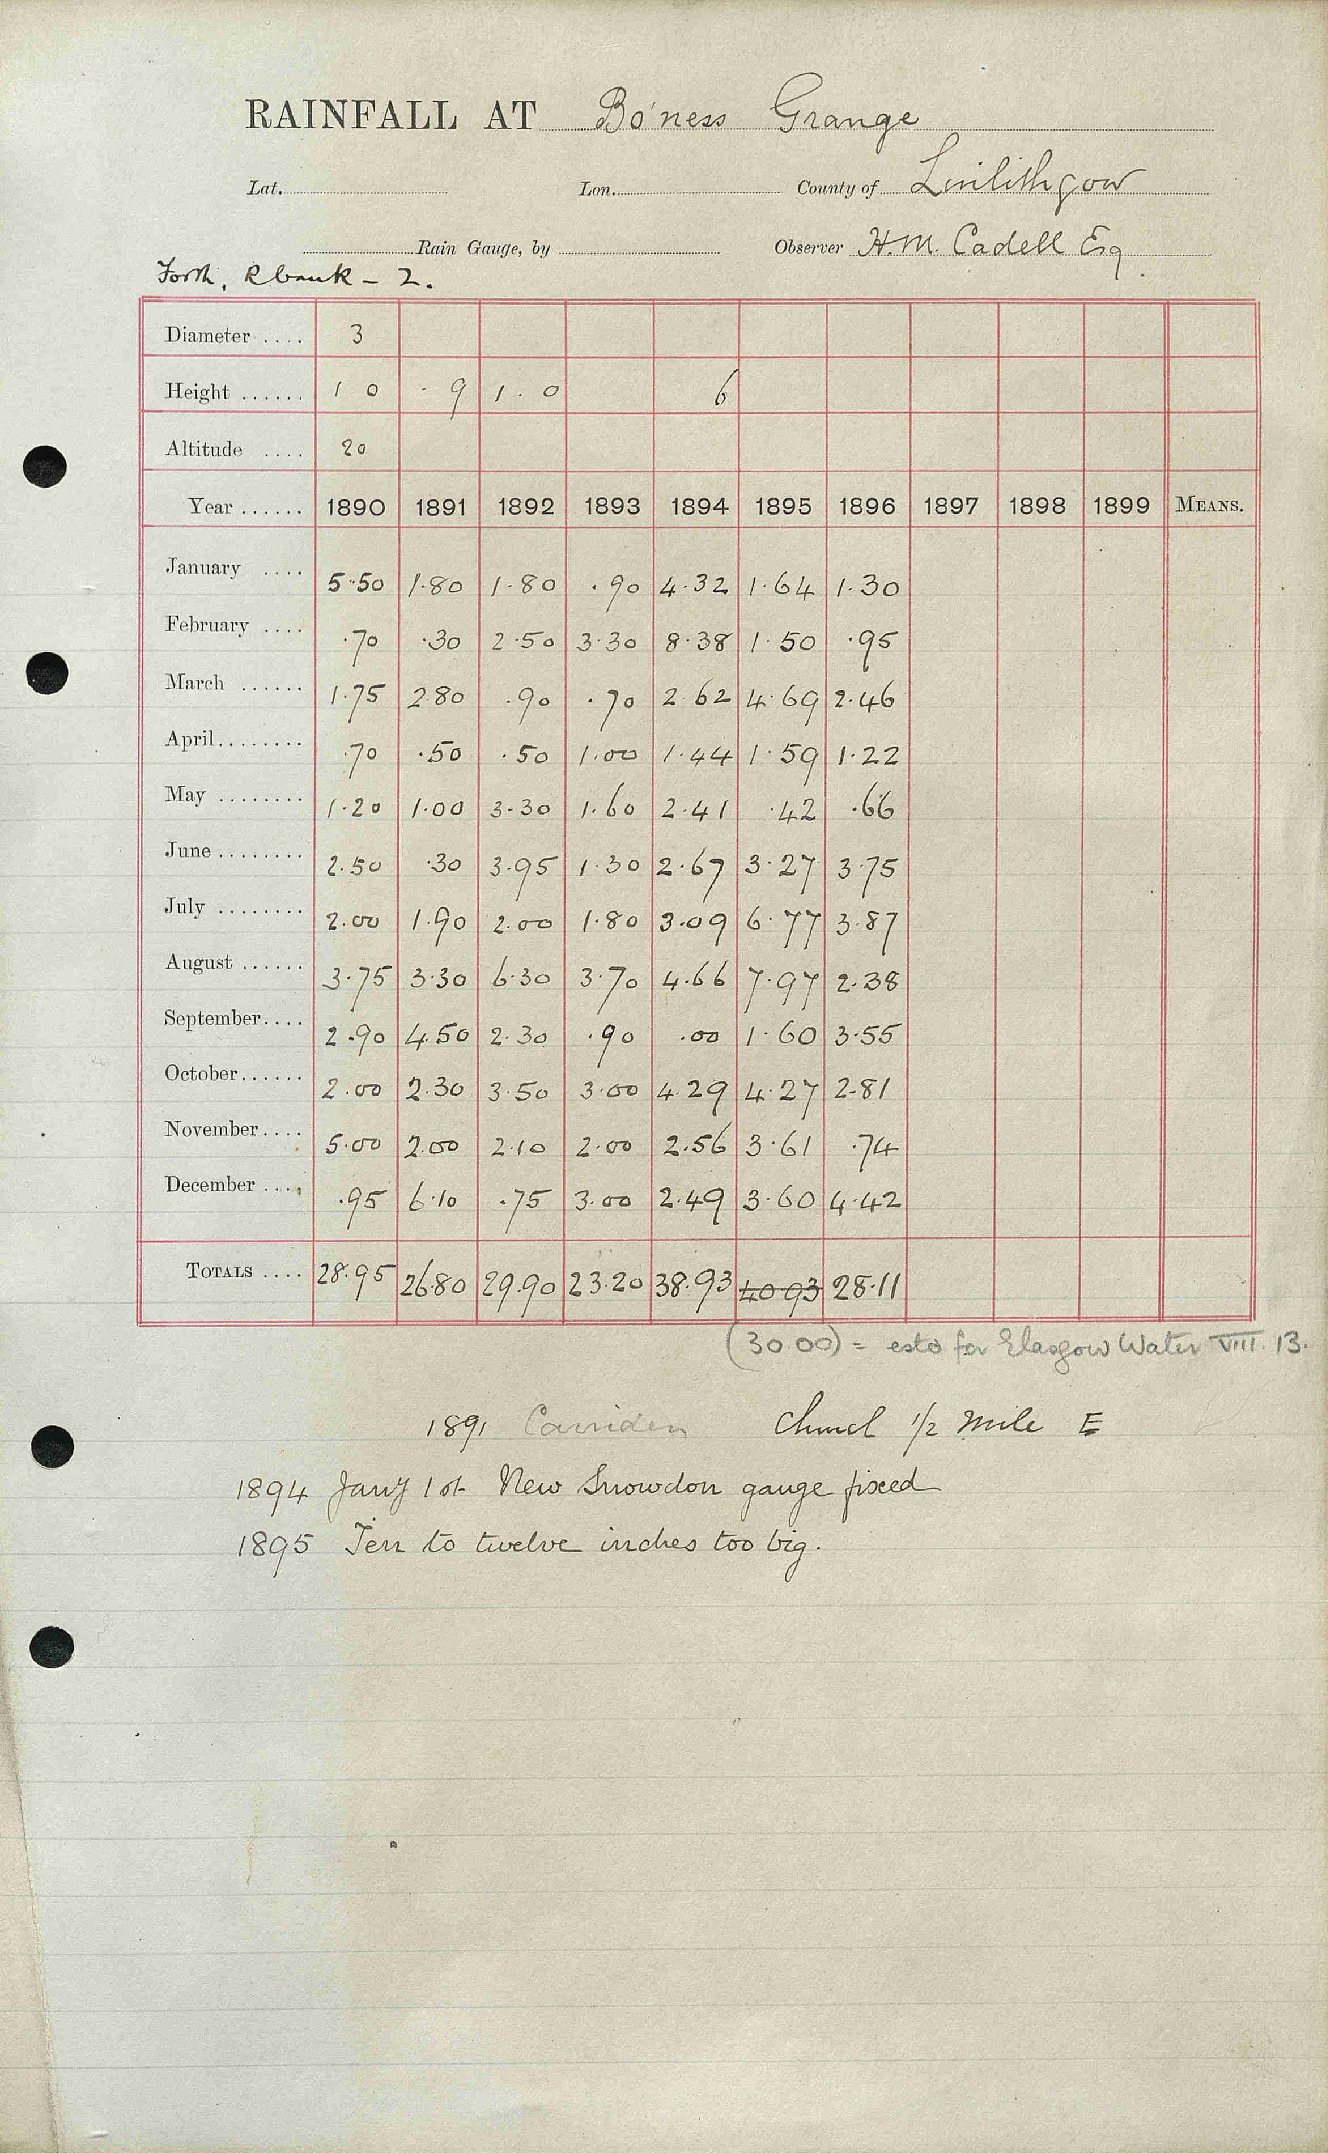 RAINFALL AT Bo'ness Grange
Lat. Lon. County of Linlithgow
Rain Gauge, by Observer H.M. Cadell Esq
Forth, R bank - 2.
Diameter .... 3
Height ...... 1 0 · 9 1 · 0 6
Altitude .... 20
Year ...... 1890 1891 1892 1893 1894 1895 1896 1897 1898 1899 MEANS.
January .... 5·50 1·80 1·80 ·90 4·32 1·64 1·30
February .... ·70 ·30 2·50 3·30 8·38 1·50 ·95
March ...... 1·75 2·80 ·90 ·70 2·62 4·69 2·46
April........ ·70 ·50 ·50 1·00 1·44 1·59 1·22
May ........ 1·20 1·00 3·30 1·60 2·41 ·42 ·66
June ........ 2·50 ·30 3·95 1·30 2·67 3·27 3·75
July ........ 2·00 1·90 2·00 1·80 3·09 6·77 3·87
August ...... 3·75 3·30 6·30 3·70 4·66 7·97 2·38
September.... 2·90 4·50 2·30 ·90 ·00 1·60 3·55
October...... 2·00 2·30 3·50 3·00 4·29 4·27 2·81
November.... 5·00 2·00 2·10 2·00 2·56 3·61 ·74
December .... ·95 6·10 ·75 3·00 2·49 3·60 4·42
TOTALS .... 28·95 26·80 29·90 23·20 38·93 40·93 28·11
(30.00) = estd for Glasgow Water VIII. 13.
1891 Carriden Church 1/2 mile E
1894 Jany 1st New Snowdon gauge fixed
1895 Ten to twelve inches too big.